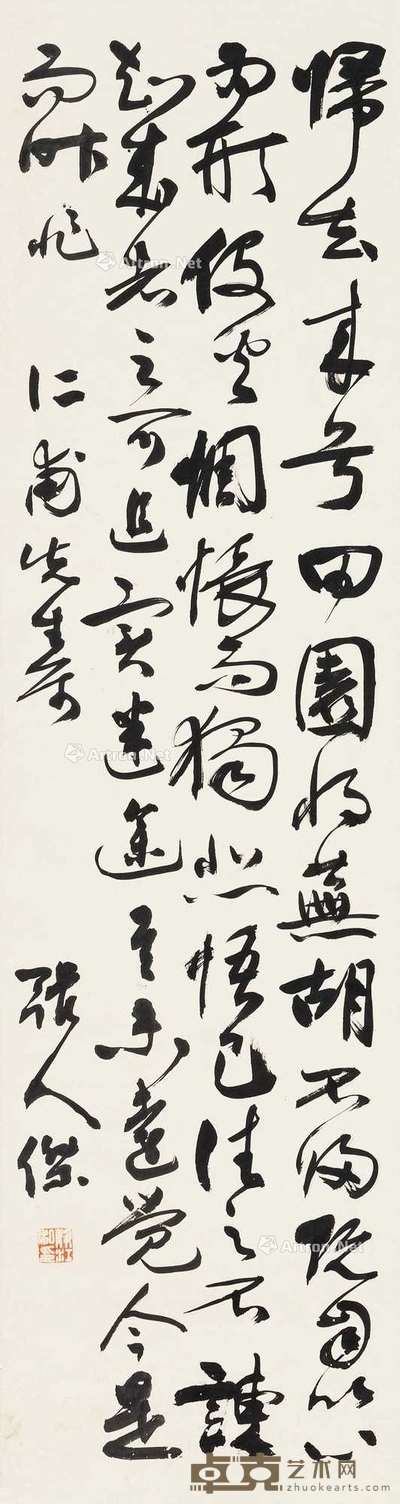 歸去來兮田園將蕪胡不歸既自以心
為形役奚惆悵而獨悲悟已往之不諫
知來者之可追實迷途其未遠覺今是
而昨非
仁甫先生屬
張人傑
Artron.Net
Artron.Net
Artron.Net
Artron.Net
卓克艺术网
zhuokearts.com